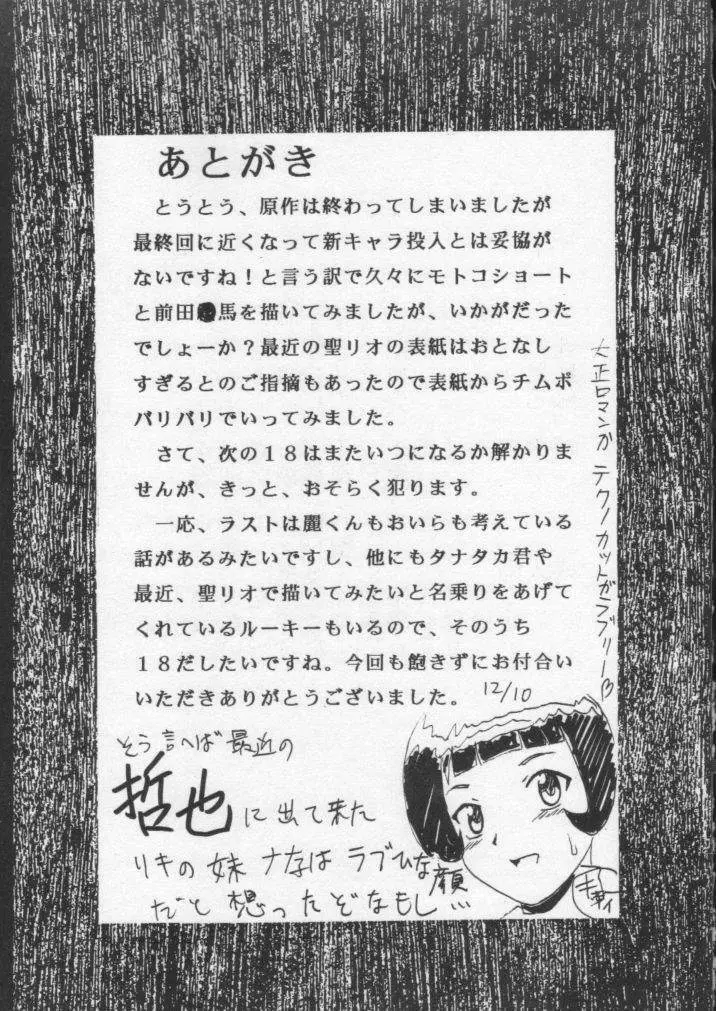 あとがき
とうとう、原作は終わってしまいましたが
最終回に近くなって新キャラ投入とは妥協が
ないですね！と言う訳で久々にモトコショート
と前田●馬を描いてみましたが、いかがだった
でしょーか？最近の聖リオの表紙はおとなし
すぎるとのご指摘もあったので表紙からチムポ
バリバリでいってみました。
さて、次の１８はまたいつになるか解かりま
せんが、きっと、おそらく犯ります。
一応、ラストは麗くんもおいらも考えている
話があるみたいですし、他にもタナタカ君や
最近、聖リオで描いてみたいと名乗りをあげて
くれているルーキーもいるので、そのうち
１８だしたいですね。今回も飽きずにお付合い
いただきありがとうございました。 12/10
大正ロマンか テクノカットがラブリー♡
そう言へば最近の
哲也に出て来た
リキの妹ナなはラブひな顔
だと想ったぞなもし